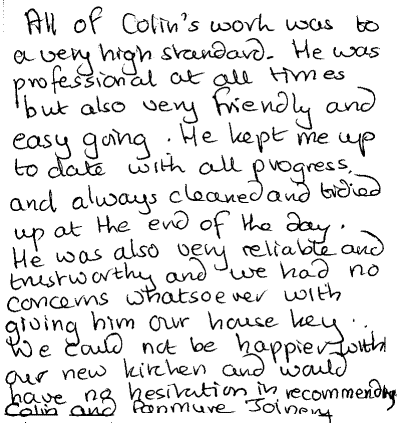 All of Colin's work was to
a very high standard. He was
professional at all times
but also very friendly and
easy going. He kept me up
to date with all progress,
and always cleaned and tidied
up at the end of the day.
He was also very reliable and
trustworthy and we had no
concerns whatsoever with
giving him our house key.
We could not be happier with
our new kitchen and would
have no hesitation in recommending
Colin and Panmure Joinery